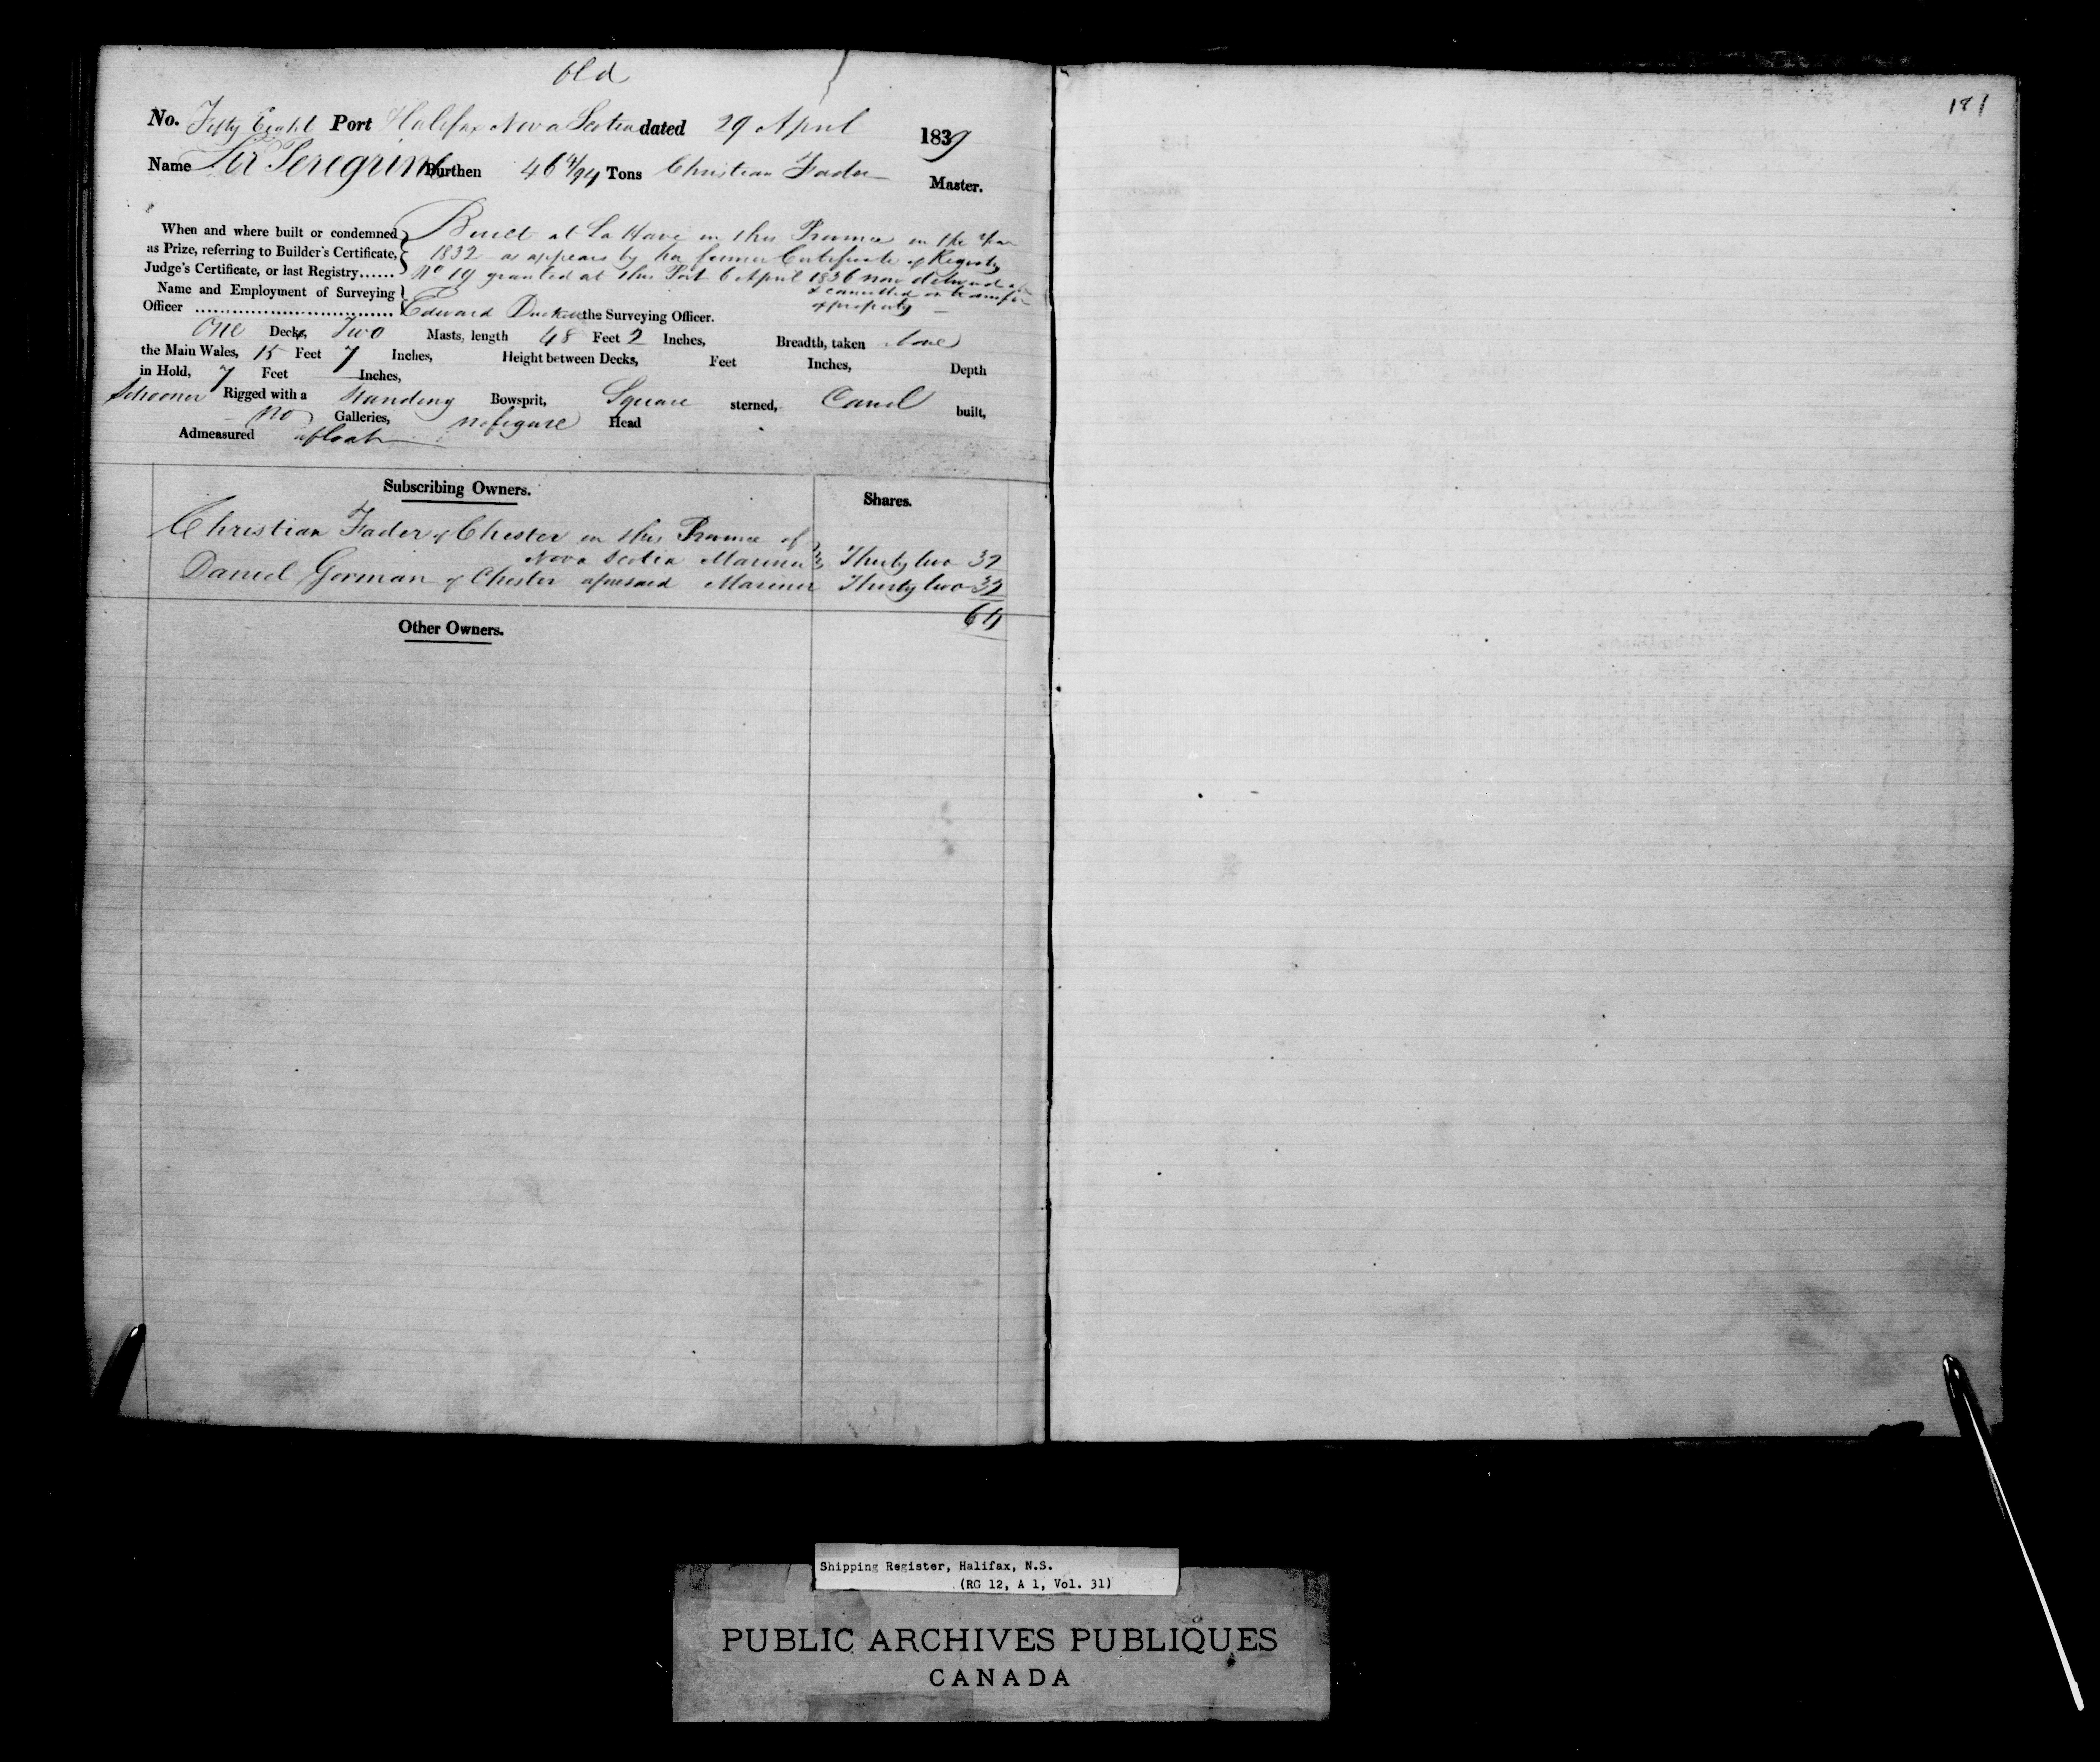 Old
No. Fifty Eight Port Halifax Nova Scotia dated 29 April 1839
Name Sir Peregrine Burthen 46 4/94 Tons Christian Fader Master.
When and where built or condemned as Prize, referring to Builder's Certificate, Judge's Certificate, or last Registry......
Built at La Have in this Province in the Year
1832 as appears by her former Certificate of Registry
No 19 granted at this Port 6 April 1836 now delivered up
& cancelled on transfer
of property
Name and Employment of Surveying Officer
Edward Duckett the Surveying Officer.
One Decks, Two Masts, length 48 Feet 2 Inches, Breadth, taken above
the Main Wales, 15 Feet 7 Inches, Height between Decks, Feet Inches, Depth
in Hold, 7 Feet Inches,
Schooner Rigged with a Standing Bowsprit, Square sterned, Carvel built,
no Galleries, no figure Head
Admeasured afloat
Subscribing Owners. Shares.
Christian Fader of Chester in this Province of
Nova Scotia Mariner Thirty two 32
Daniel Gorman of Chester aforesaid Mariner Thirty two 32
64
Other Owners.
181
Shipping Register, Halifax, N.S.
(RG 12, A 1, Vol. 31)
PUBLIC ARCHIVES PUBLIQUES
CANADA